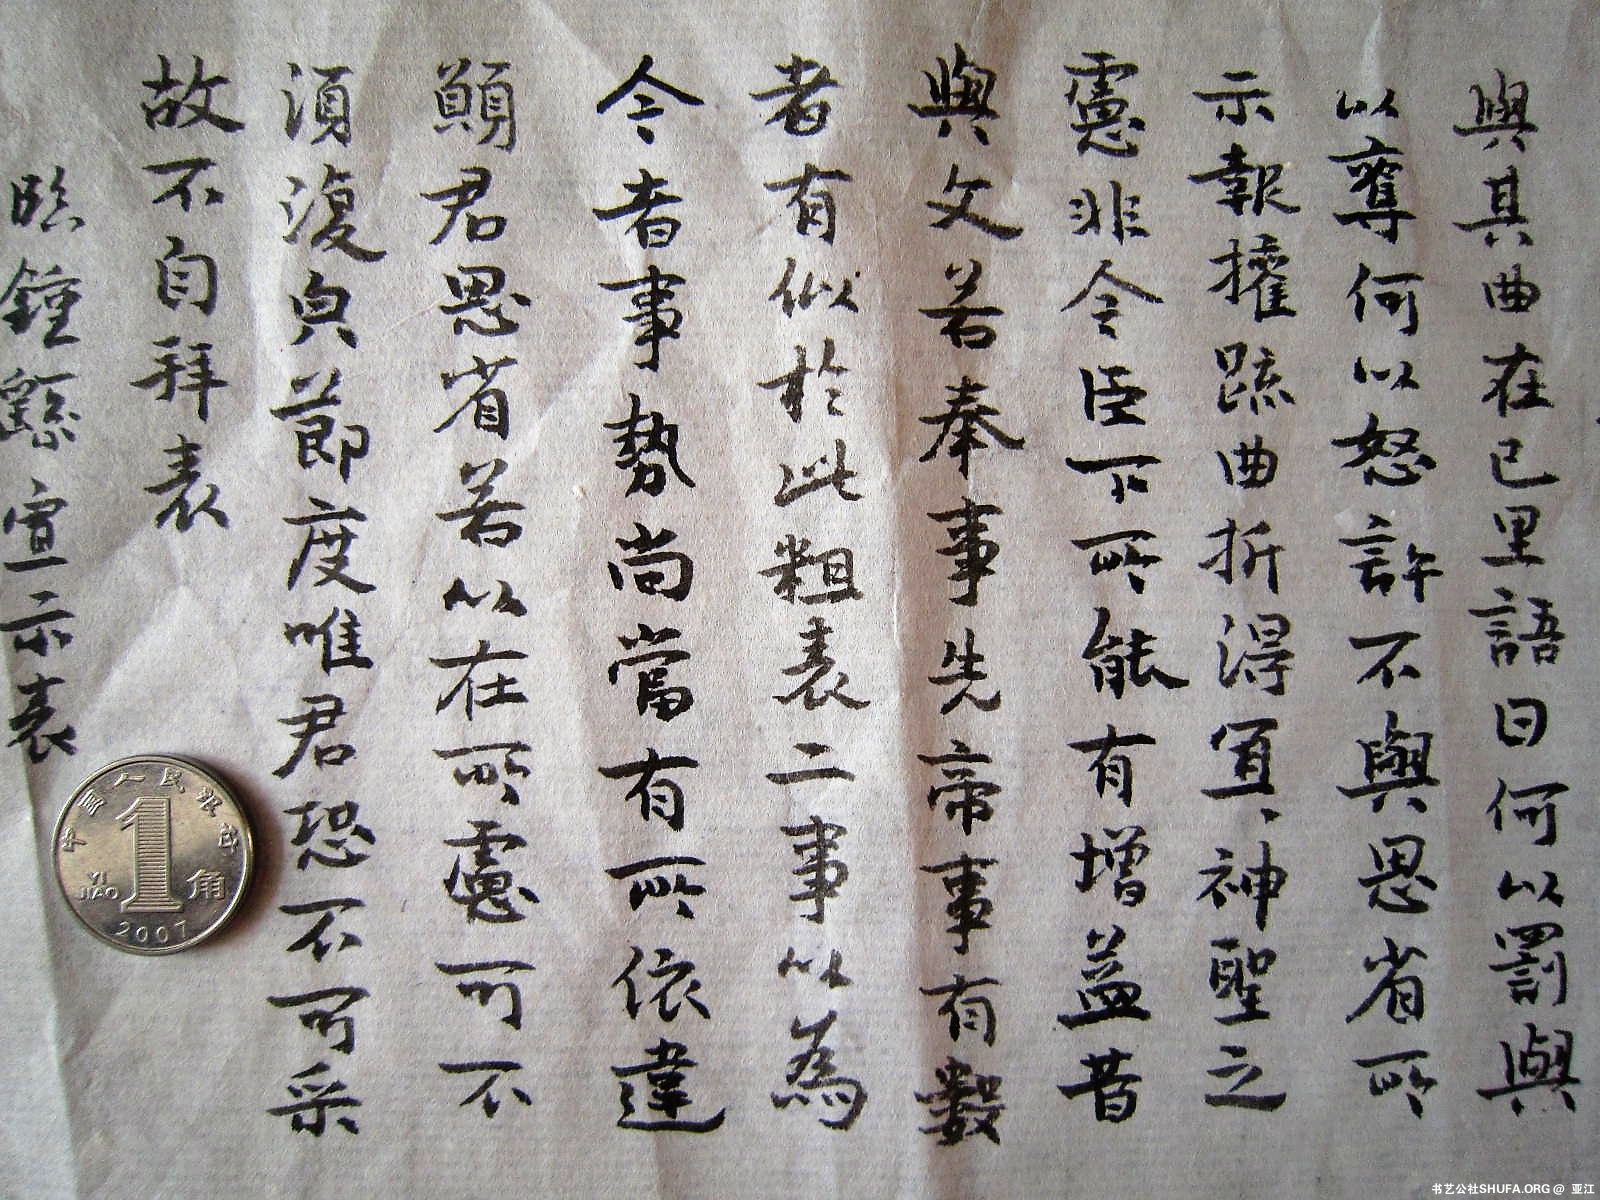 與其曲在己里語曰何以罰與
以奪何以怒許不與思省所
示報權疏曲折得宜神聖之
慮非今臣下所能有增益昔
與文若奉事先帝事有數
者有似於此粗表二事以為
今者事勢尚當有所依違
願君思省若以在所慮可不
須復與節度唯君恐不可采
故不自拜表
臨鍾繇宣示表
中国人民银行
1
YI JIAO
角
2007
书艺公社SHUFA.ORG @ 亚江